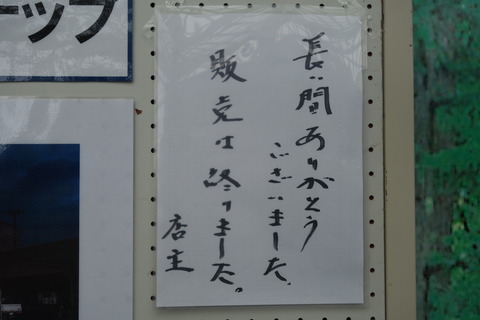 ップ
長い間ありがとう
ございました.
販売は終りました。
店主